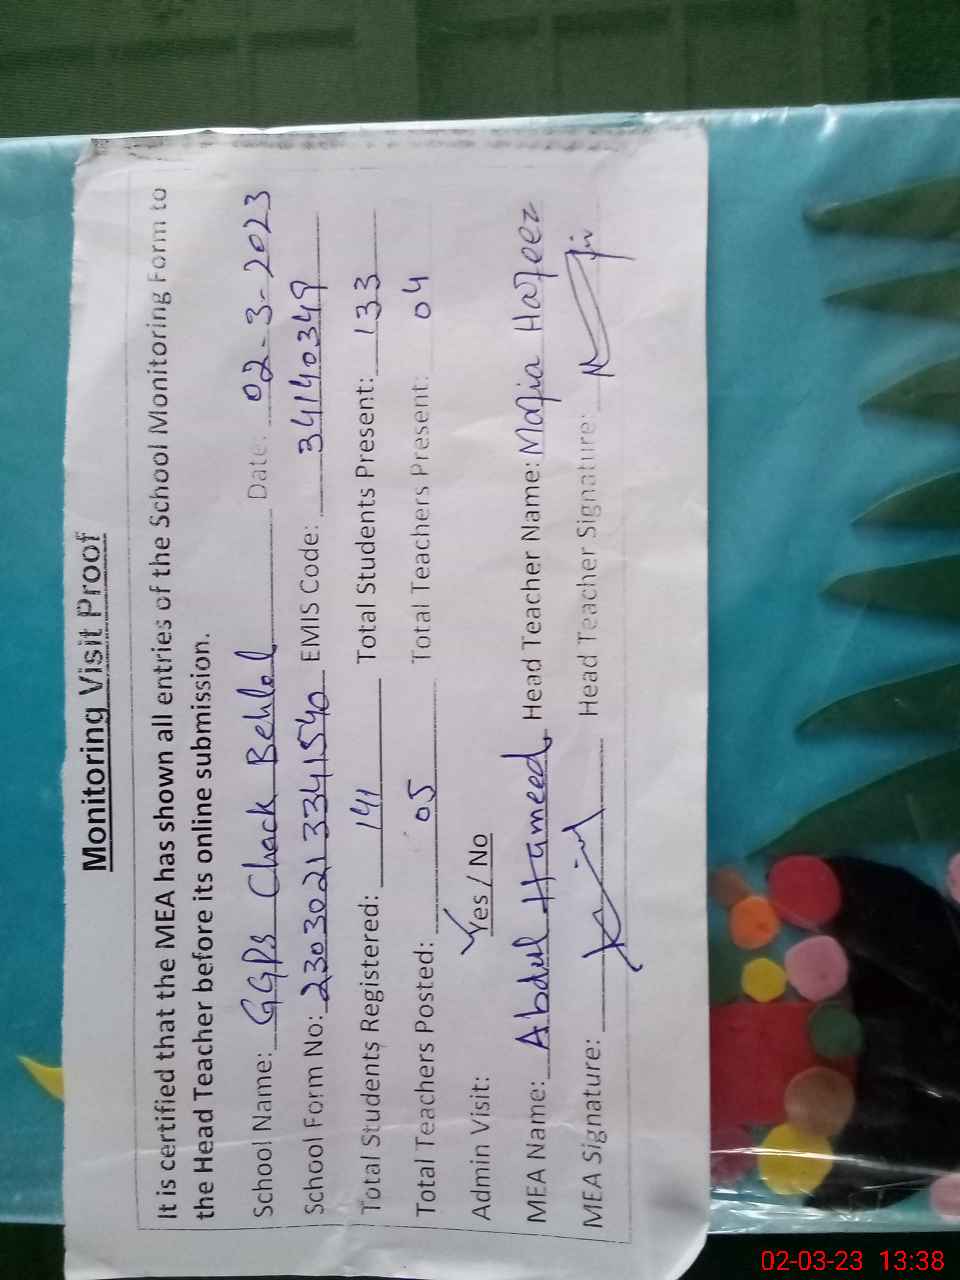 Monitoring Visit Proof
It is certified that the MEA has shown all entries of the School Monitoring Form to
the Head Teacher before its online submission.
School Name: GGPS Chack Behlol Date: 02-3-2023
School Form No: 2303021 3341540 EMIS Code: 34140349
Total Students Registered: 141 Total Students Present: 133
Total Teachers Posted: 05 Total Teachers Present: 04
Admin Visit: Yes / No
MEA Name: Abdul Hameed Head Teacher Name: Hafeez
MEA Signature: Head Teacher Signature:
02-03-23 13:38